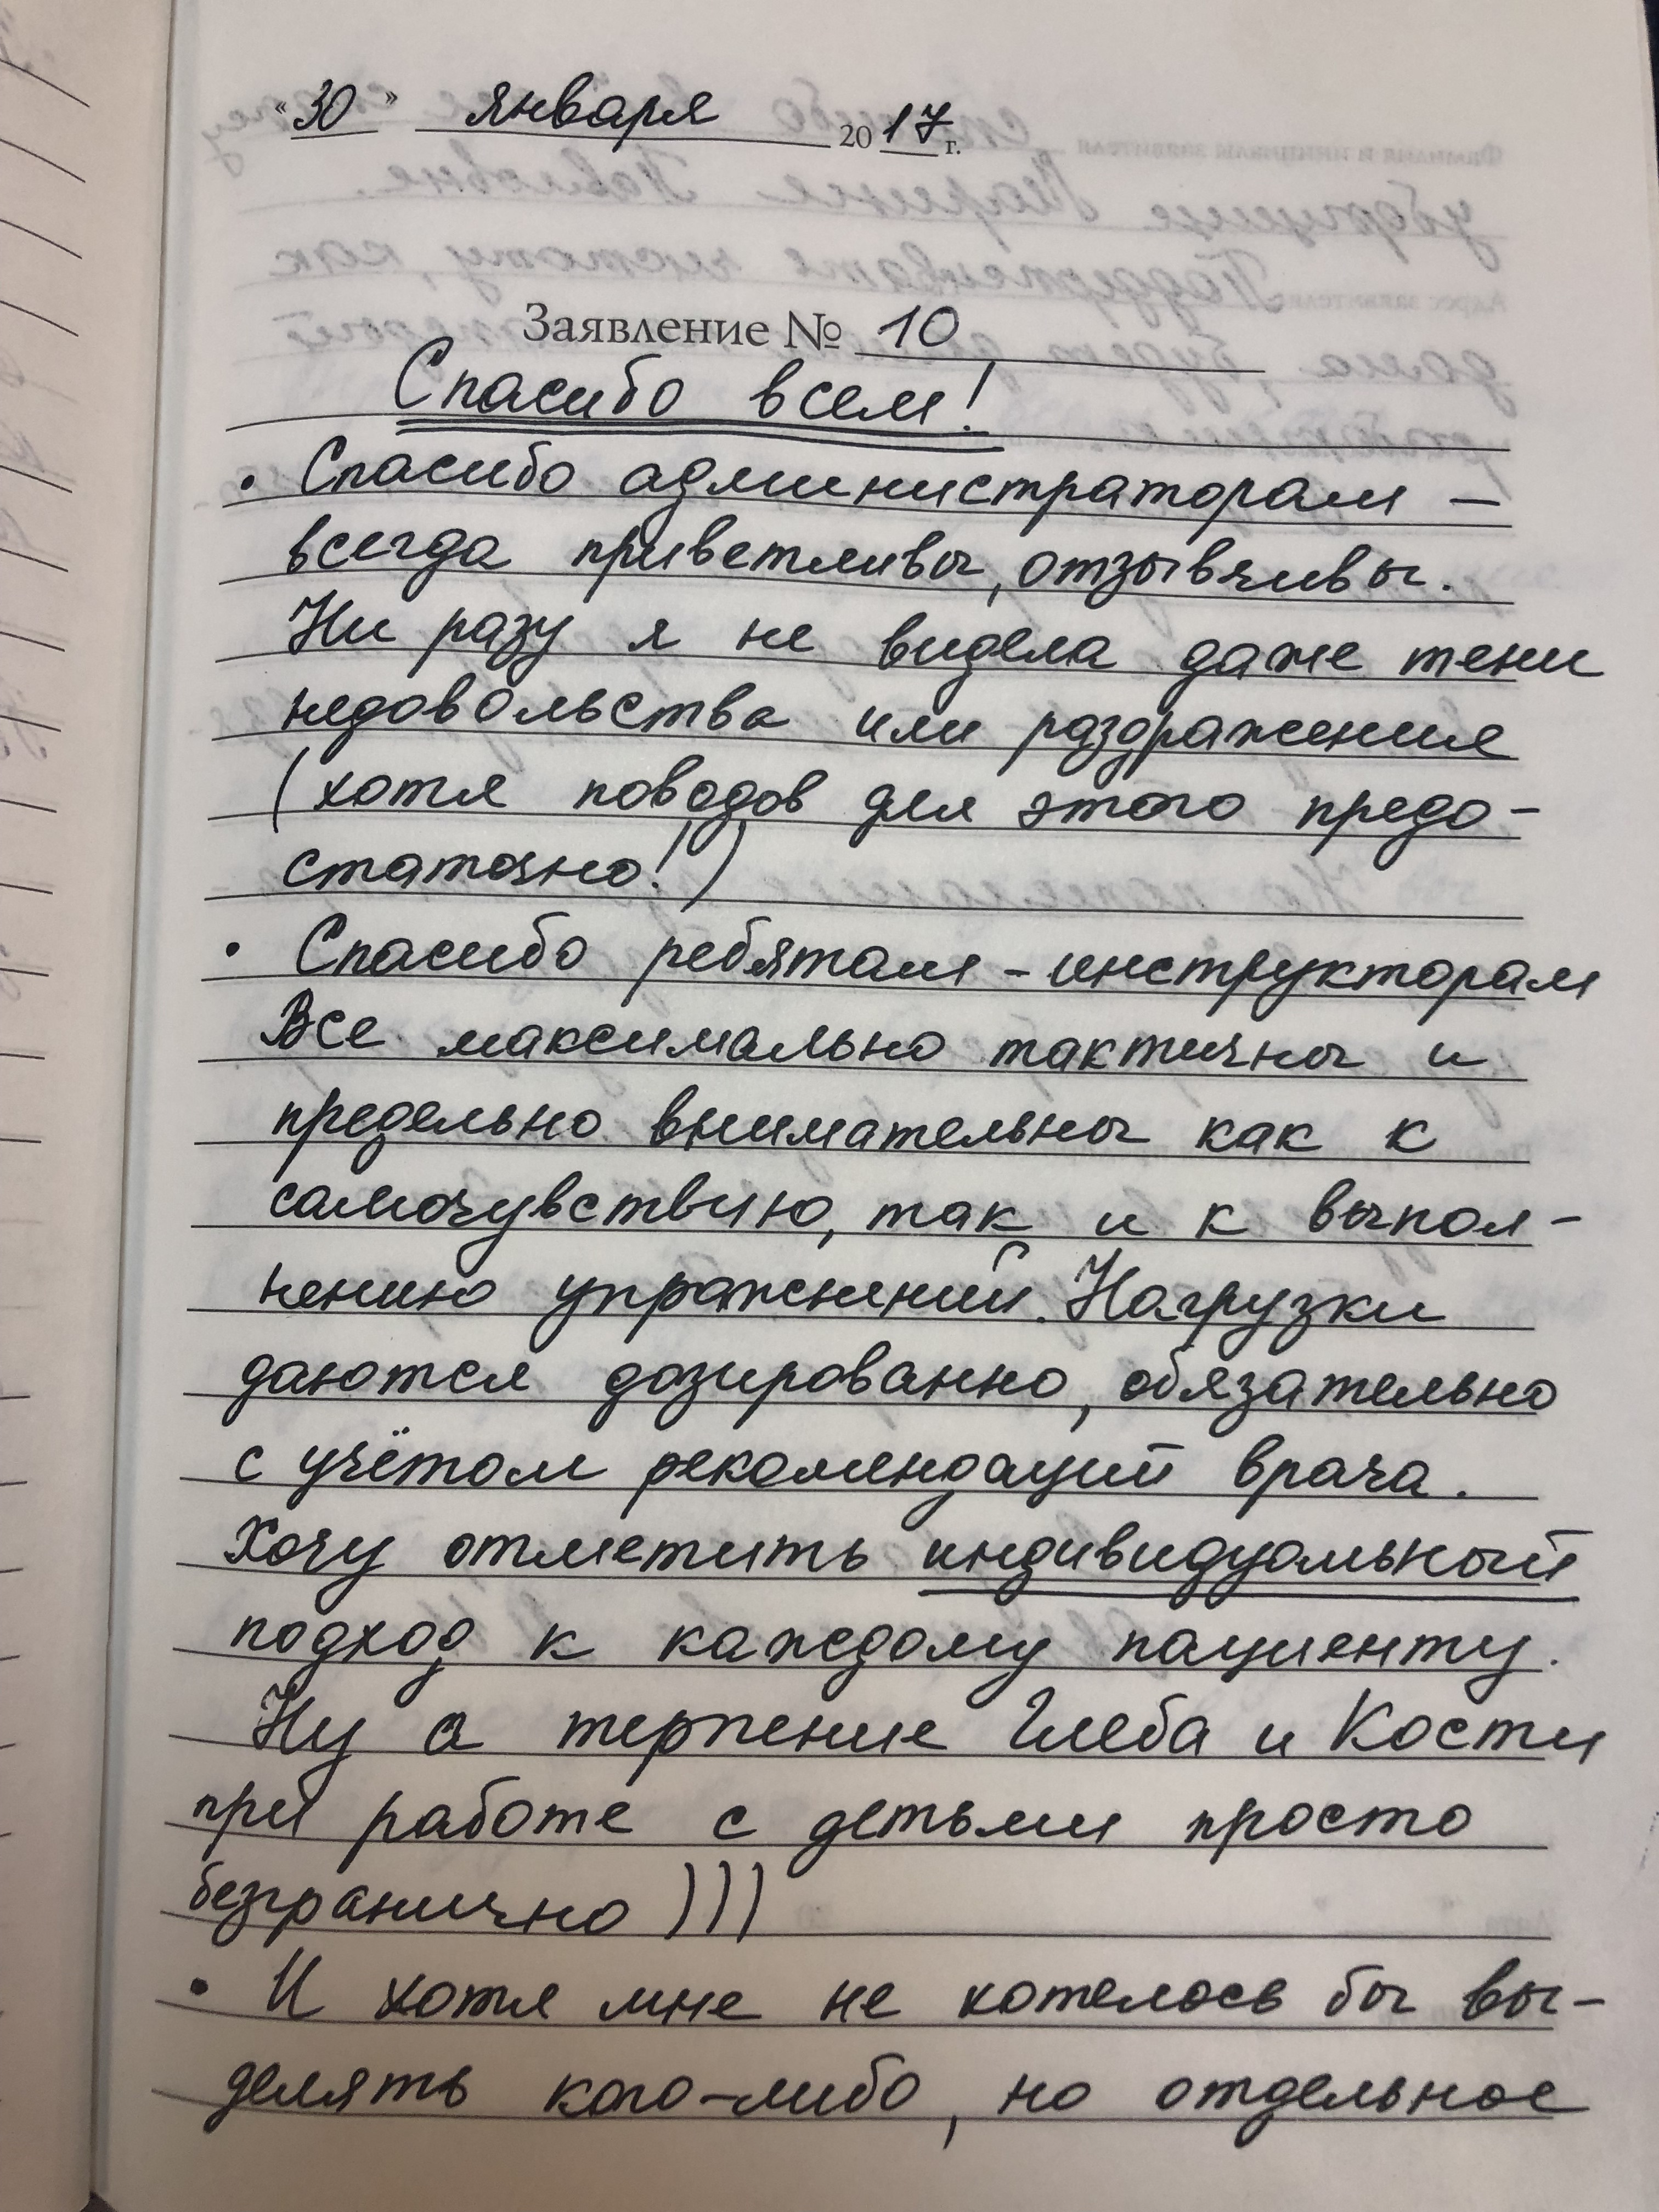 «30» января 2017 г.
Заявление № 10
Спасибо всем!
• Спасибо администраторам –
всегда приветливы, отзывчивы.
Ни разу я не видела даже тени
недовольства или раздражения
(хотя поводов для этого предо-
статочно!)
• Спасибо ребятам - инструкторам
Все максимально тактичны и
предельно внимательны как к
самочувствию, так и к выпол-
нению упражнений. Нагрузки
даются дозированно, обязательно
с учётом рекомендаций врача.
Хочу отметить индивидуальный
подход к каждому пациенту.
Ну а терпение Глеба и Кости
при работе с детьми просто
безгранично)))
• И хотя мне не хотелось бы вы-
делять кого-либо, но отдельное